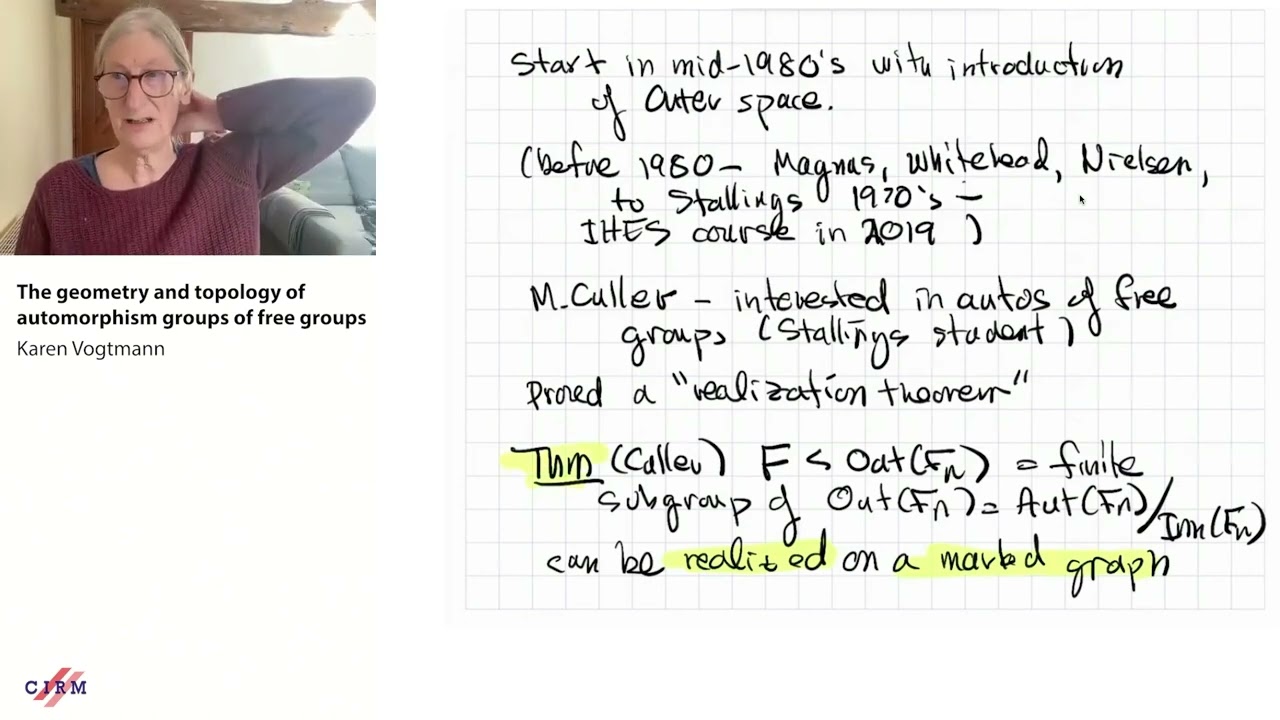 Start in mid-1980's with introduction
of Outer space.
(before 1980 - Magnus, Whitehead, Nielsen,
to Stallings 1970's -
IHES course in 2019 )
M. Culler - interested in autos of free
groups (Stallings student)
Proved a "realization theorem"
Thm (Culler) F < Out(Fn) = finite
subgroup of Out(Fn) = Aut(Fn)/Inn(Fn)
can be realized on a marked graph
The geometry and topology of
automorphism groups of free groups
Karen Vogtmann
CIRM